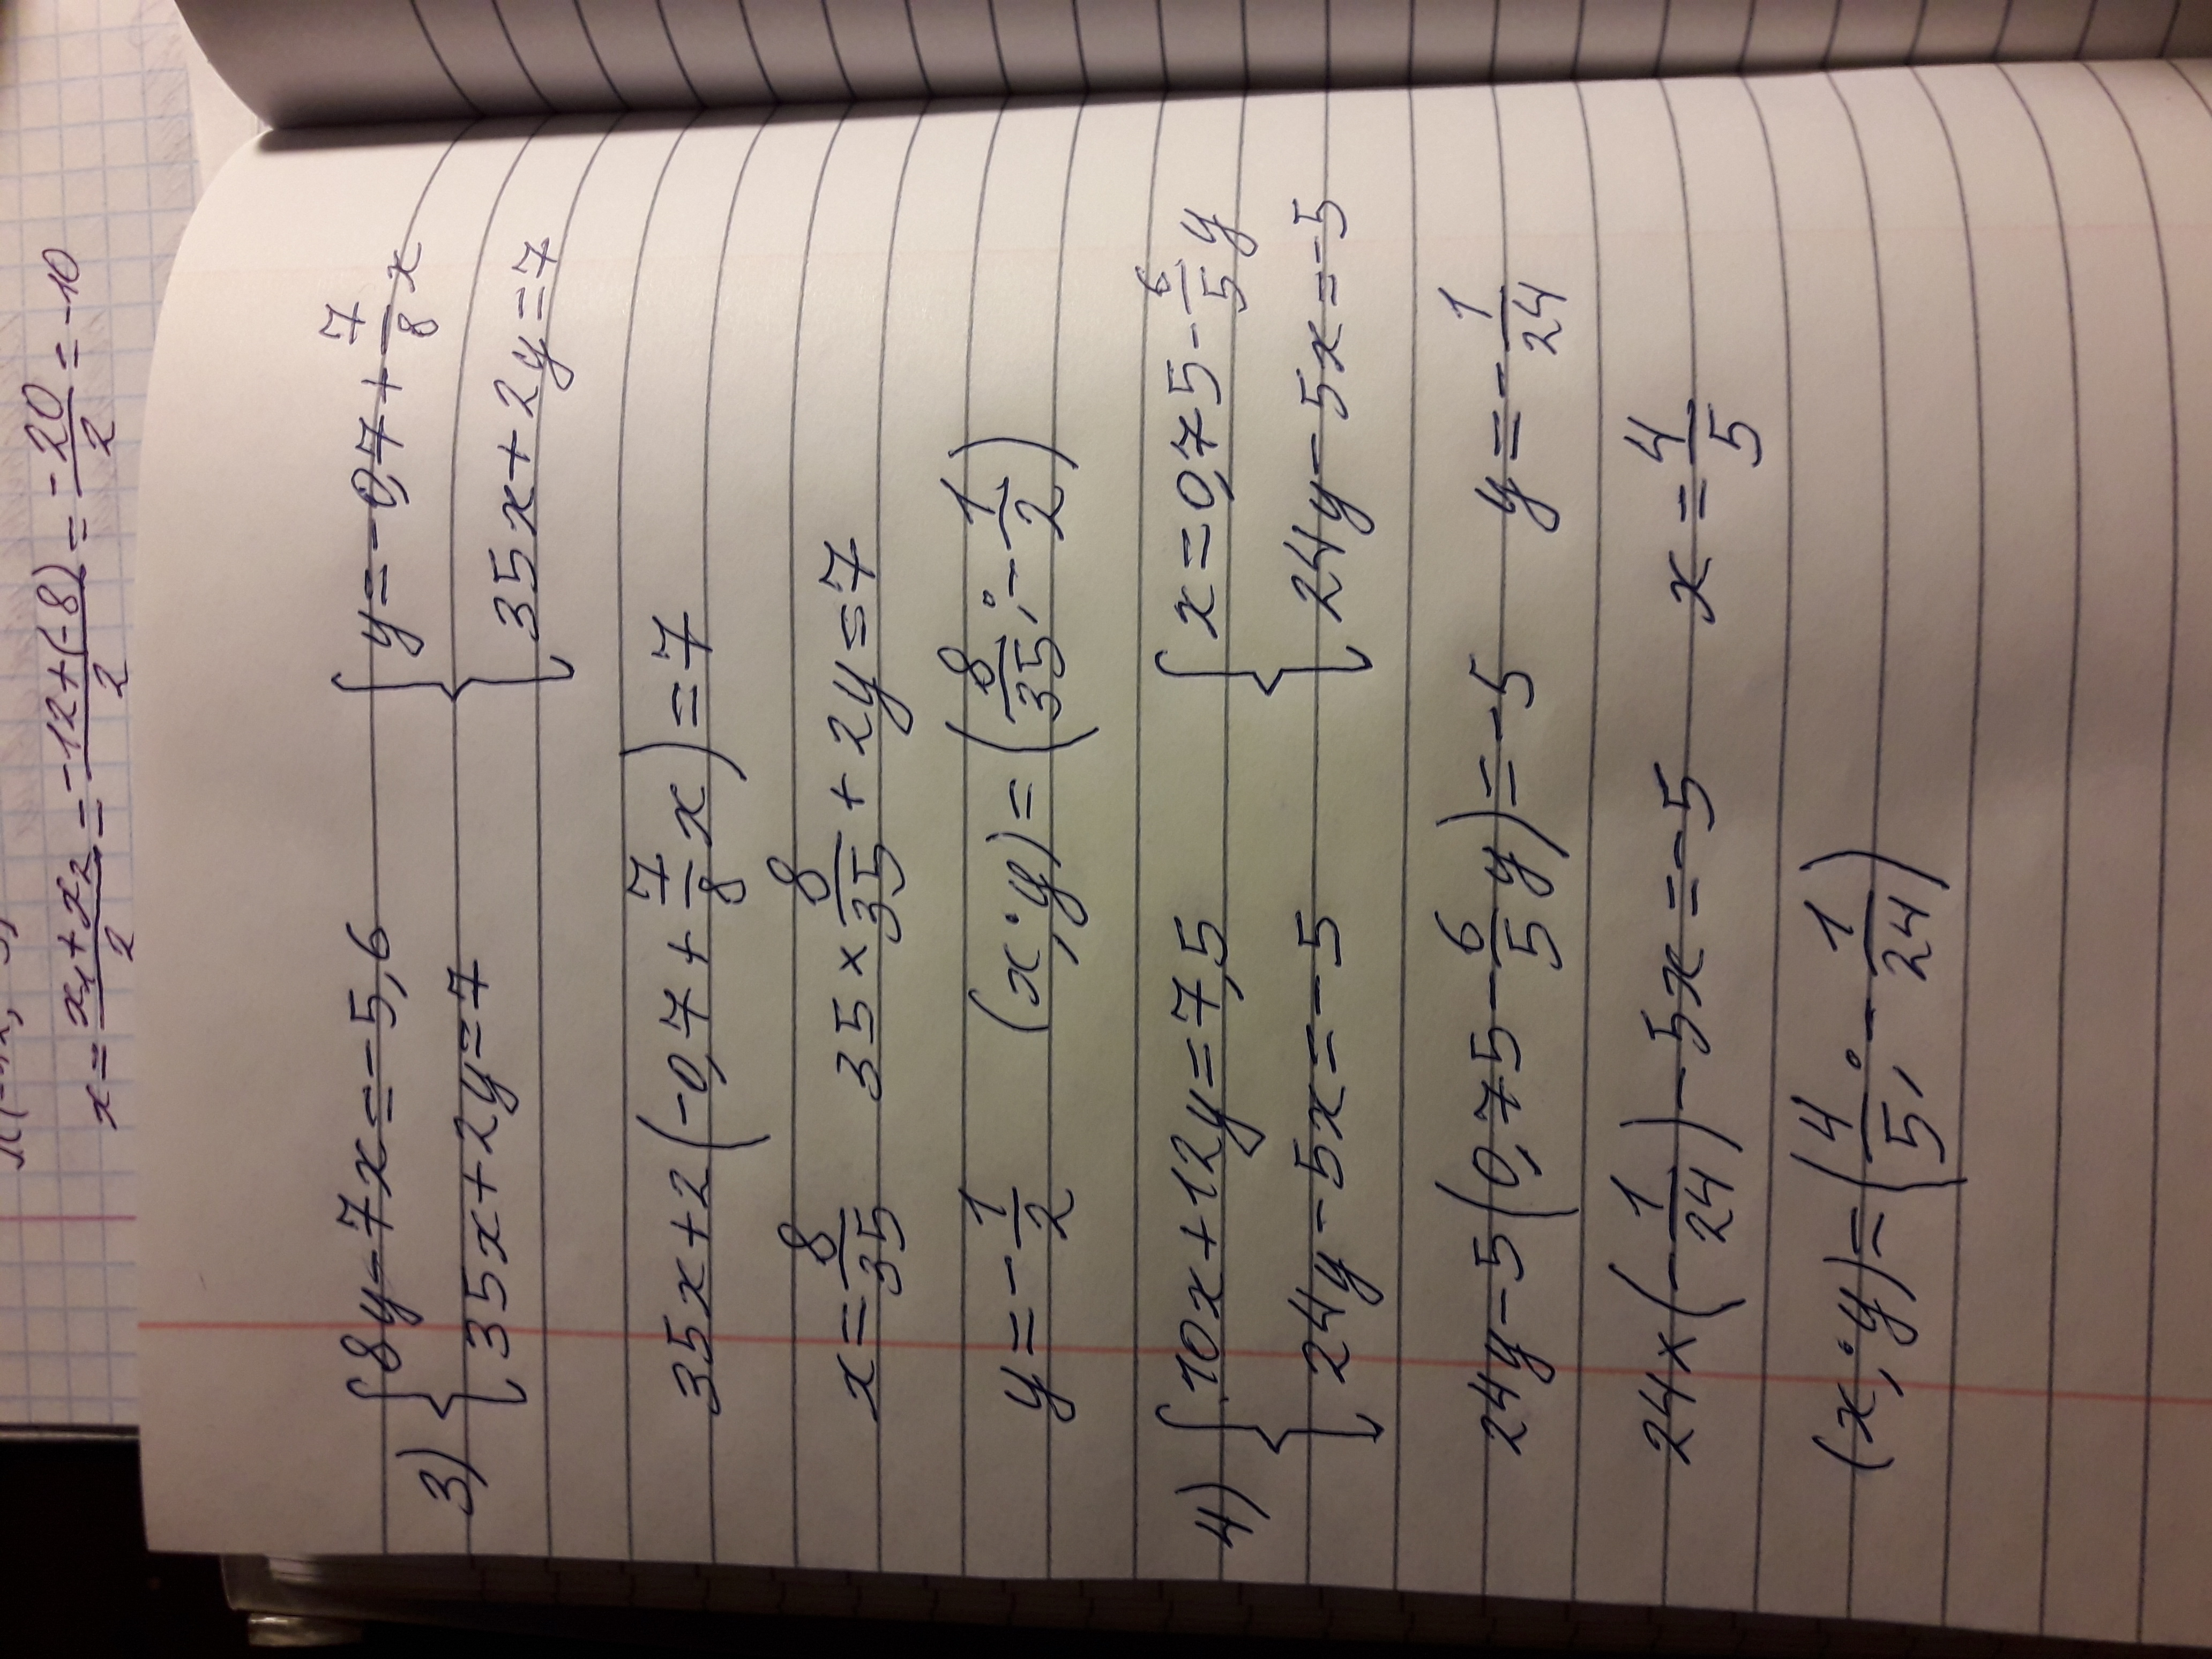 x = (x₁ + x₂)/2 = (-12 + (-8))/2 = -20/2 = -10
3) { 8y - 7x = -5,6 { y = -0,7 + 7/8 x
35x + 2y = 7 35x + 2y = 7
35x + 2(-0,7 + 7/8 x) = 7
x = 8/35 35 × 8/35 + 2y = 7
y = -1/2 (x; y) = (8/35; -1/2)
4) { 10x + 12y = 7,5 { x = 0,75 - 6/5 y
24y - 5x = -5 24y - 5x = -5
24y - 5(0,75 - 6/5 y) = -5 y = -1/24
24 × (-1/24) - 5x = -5 x = 4/5
(x; y) = (4/5; -1/24)